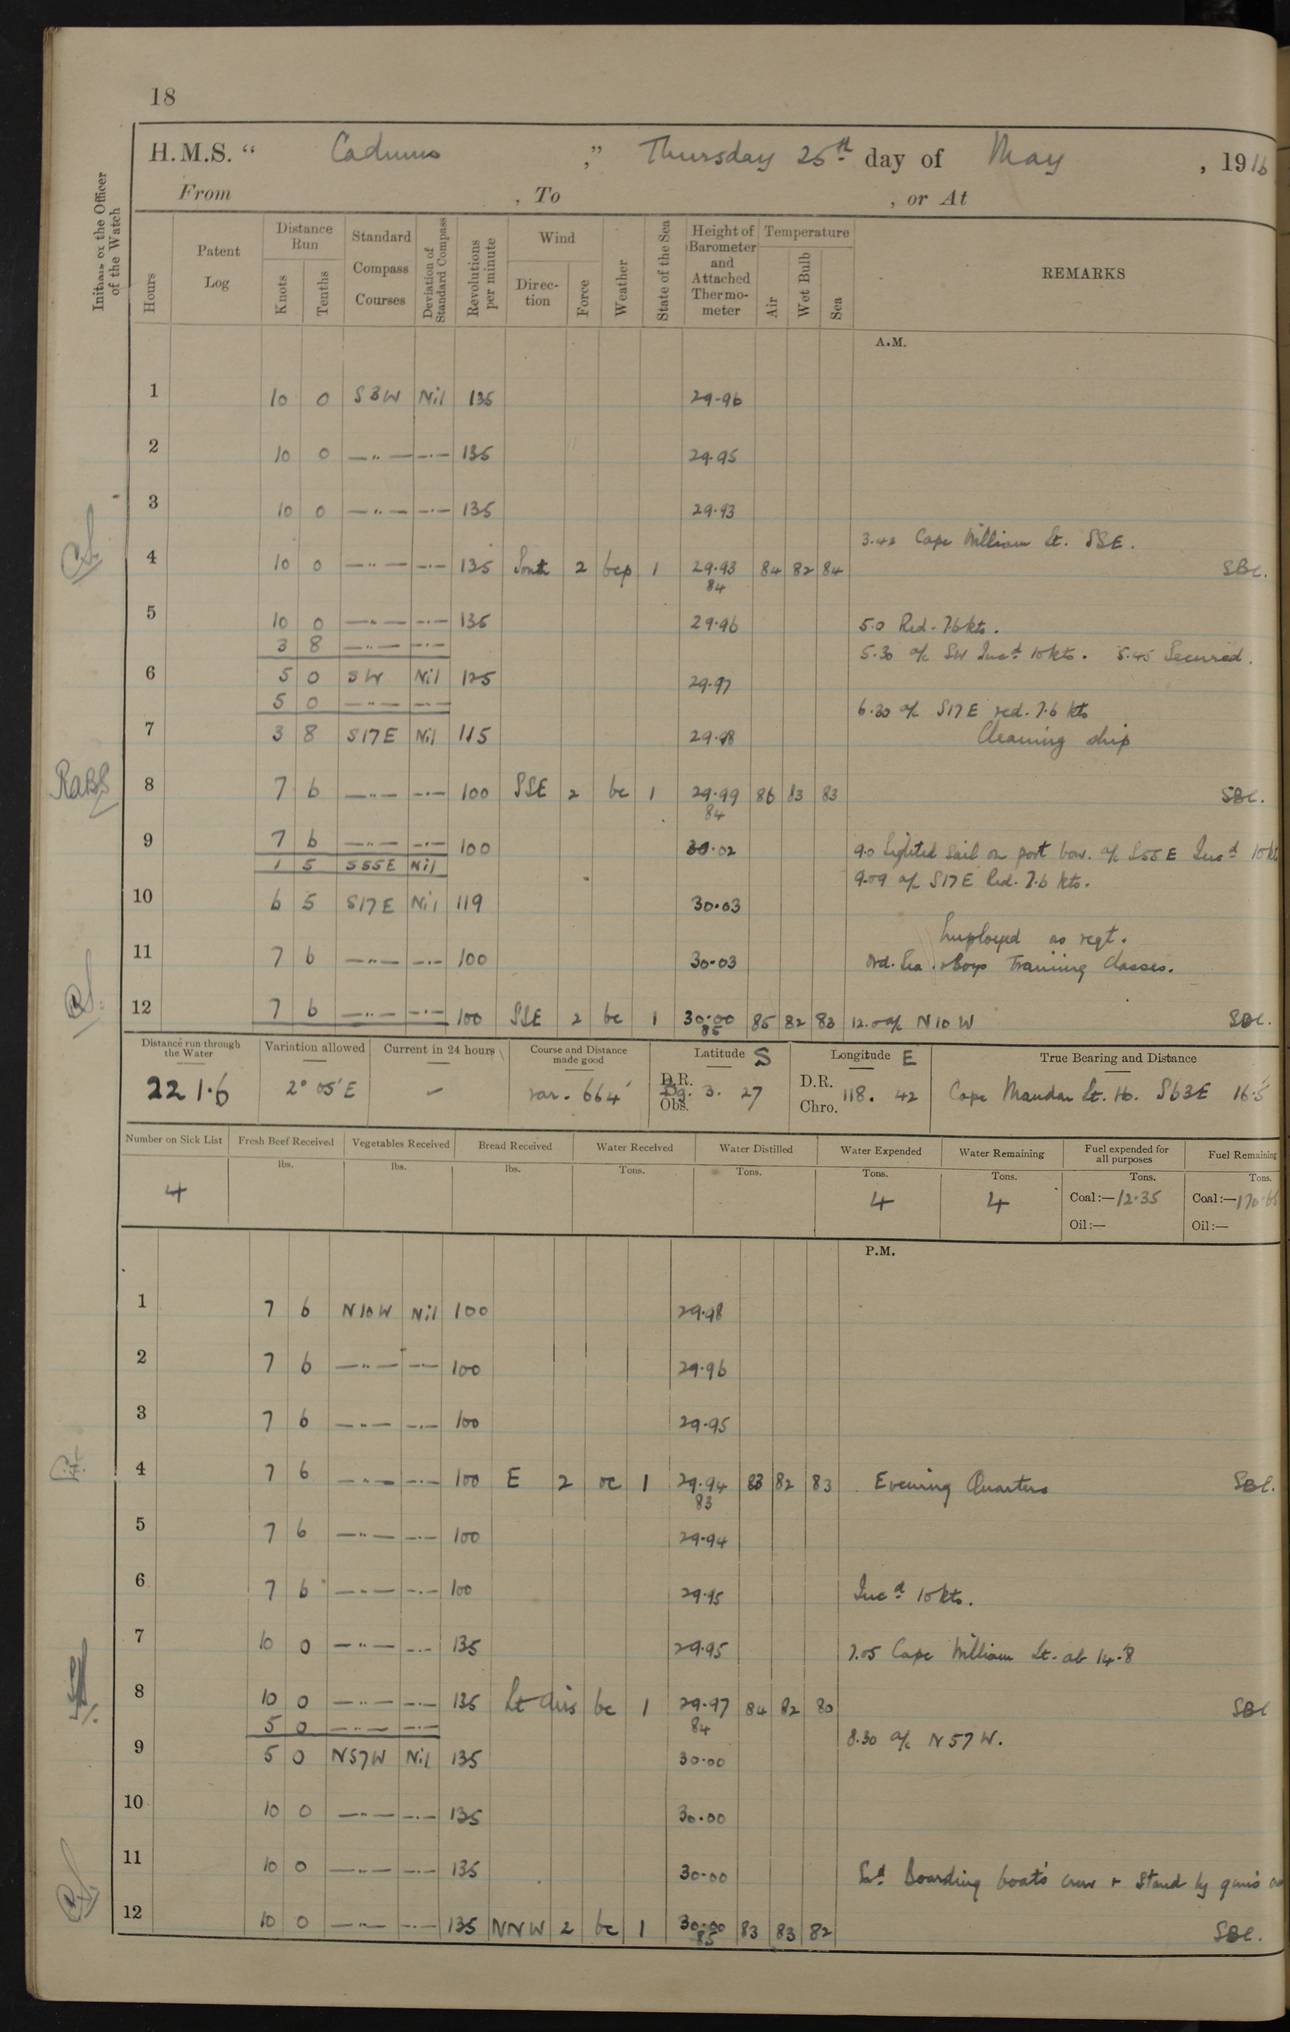 18
H.M.S. “ Cadmus ,” Thursday 25th day of May , 1916
From , To , or At
Initials of the Officer of the Watch
Hours Patent Log Distance Run Knots Tenths Standard Compass Courses Deviation of Standard Compass Revolutions per minute Wind Direction Force Weather State of the Sea Height of Barometer and Attached Thermometer Temperature Air Wet Bulb Sea REMARKS
A.M.
1 10 0 SBW Nil 135 29.96
2 10 0 —..— —.— 135 29.95
3 10 0 —..— —.— 135 29.93
3.42 Cape William Lt. SSE.
4 10 0 —..— —.— 135 South 2 bcp 1 29.93 84 84 82 84 SBC.
5 10 0 —..— —.— 135 29.96 5.0 Red. 7.6 kts.
3 8 —..— —.— 5.30 a/c SW Incd 10 kts. 5.45 Secured.
6 5 0 SW Nil 125 29.97
5 0 —..— —.— 6.30 a/c S17E red. 7.6 kts
7 3 8 S17E Nil 115 29.98 Cleaning ship
8 7 6 —..— —.— 100 SSE 2 bc 1 29.99 84 86 83 83 SBC.
9 7 6 —..— —.— 100 30.02 9.0 Sighted sail on port bow. a/c S55E Incd 10 kt
1 5 S55E Nil 9.09 a/c S17E Red. 7.6 kts.
10 6 5 S17E Nil 119 30.03
Employed as reqt.
11 7 6 —..— —.— 100 30.03 Ord. Sea. & Boys Training Classes.
12 7 6 —..— —.— 100 SSE 2 bc 1 30.00 85 85 82 83 12.0 a/c N10W SBC.
Distance run through the Water Variation allowed Current in 24 hours Course and Distance made good Latitude S Longitude E True Bearing and Distance
221.6 2° 05' E — var. 664' D.R. Obs. 3. 27 D.R. Chro. 118. 42 Cape Mandar Lt. Ho. S63E 16.5
Number on Sick List Fresh Beef Received Vegetables Received Bread Received Water Received Water Distilled Water Expended Water Remaining Fuel expended for all purposes Fuel Remaining
lbs. lbs. lbs. Tons. Tons. Tons. Tons. Tons. Tons.
4 4 4 Coal:—12.35 Coal:—170.65
Oil:— Oil:—
P.M.
1 7 6 N10W Nil 100 29.98
2 7 6 —..— —.— 100 29.96
3 7 6 —..— —.— 100 29.95
4 7 6 —..— —.— 100 E 2 oc 1 29.94 83 83 82 83 Evening Quarters SBC.
5 7 6 —..— —.— 100 29.94
6 7 6 —..— —.— 100 29.95 Incd 10 kts.
7 10 0 —..— —.— 135 29.95 7.05 Cape William Lt. ab 14.8
8 10 0 —..— —.— 135 Lt airs bc 1 29.97 84 84 82 80 SBC
5 0 —..— —.— 8.30 a/c N57W.
9 5 0 N57W Nil 135 30.00
10 10 0 —..— —.— 135 30.00
11 10 0 —..— —.— 135 30.00 Exd Boarding boat's crew & stand by guns
12 10 0 —..— —.— 135 NNW 2 bc 1 30.00 85 83 83 82 SBC.